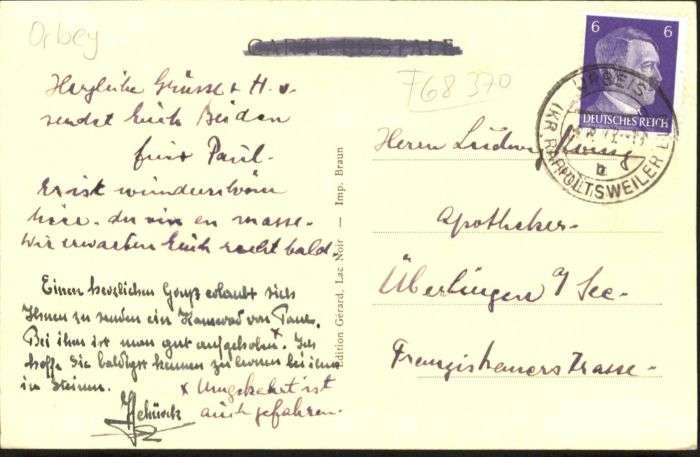 Orbey
CARTE POSTALE
F68370
6 6
DEUTSCHES REICH
URBEIS
(KR. RAPPOLTSWEILER
b
Herzliche Grüsse
sendet Euch Beiden
Paul.
Er ist wunderschön
hier. du vin en masse.
Wir erwarten Euch recht bald.
Einen herzlichen Gruß erlaubt sich
Ihnen zu senden ein Kamerad von Paul.
Bei ihm ist man gut aufgehoben. x Ich
hoffe Sie baldigst kennen zu lernen bei ihm
in
x Umgekehrt ist
auch gefahren.
Edition Gérard, Lac Noir — Imp. Braun
Herrn Ludwig
Apotheker.
Überlingen a/ See.
Franziskanerstrasse.